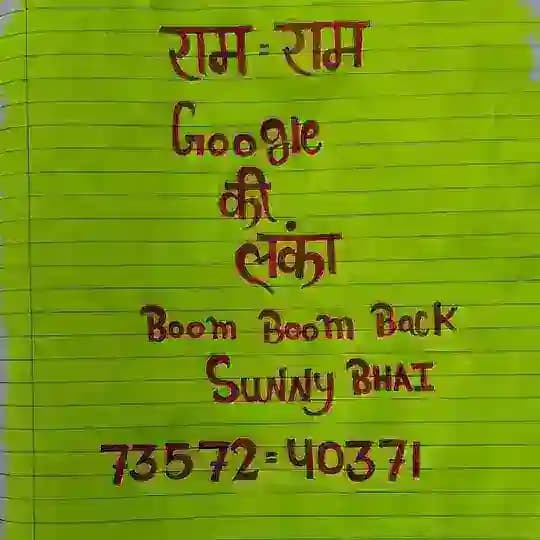 राम = राम
Google
की
लंका
BOOM BOOM BACK
SUNNY BHAI
73572=40371